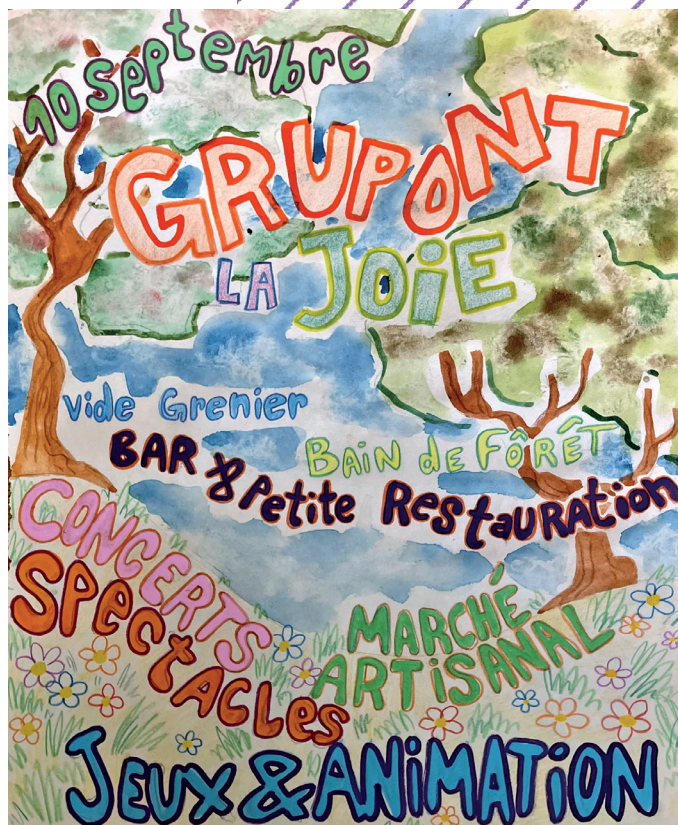 10 septembre
GRUPONT
LA JOiE
vide Grenier
BAR & Petite RestauRAtion
BaiN de FÔRÊT
CONCERTS
SPectAcLes
MARCHÉ
ARTiSANAL
JEUX & ANiMATiON